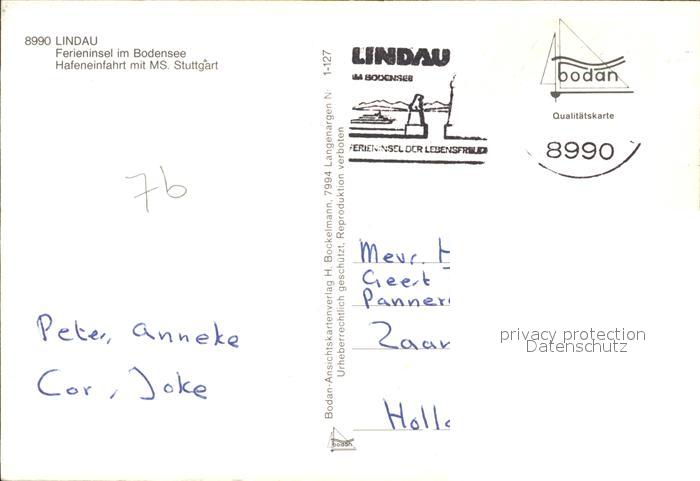 8990 LINDAU
Ferieninsel im Bodensee
Hafeneinfahrt mit MS. Stuttgart
7b
Peter, Anneke
Cor, Joke
Bodan-Ansichtskartenverlag H. Bockelmann, 7994 Langenargen N 1-127
Urheberrechtlich geschützt, Reproduktion verboten
bodan
LINDAU
IM BODENSEE
FERIENINSEL DER LEBENSFREUD
bodan
Qualitätskarte
8990
Mevr. H
Geert
Panner
Zaan
Holl
privacy protection
Datenschutz